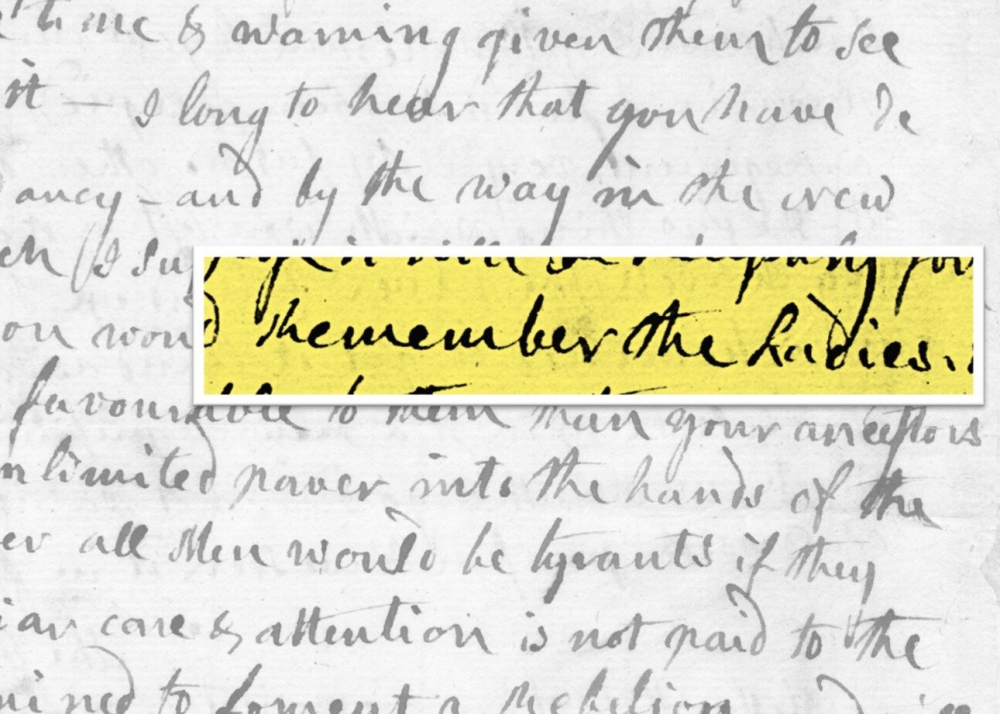 time & warning given them to see
it — I long to hear that you have de
ancy – and by the way in the new
I su
on would Remember the Ladies.
favourable to them than your ancestors
nlimited power into the hands of the
er all Men would be tyrants if they
iar care & attention is not paid to the
mined to foment a Rebelion